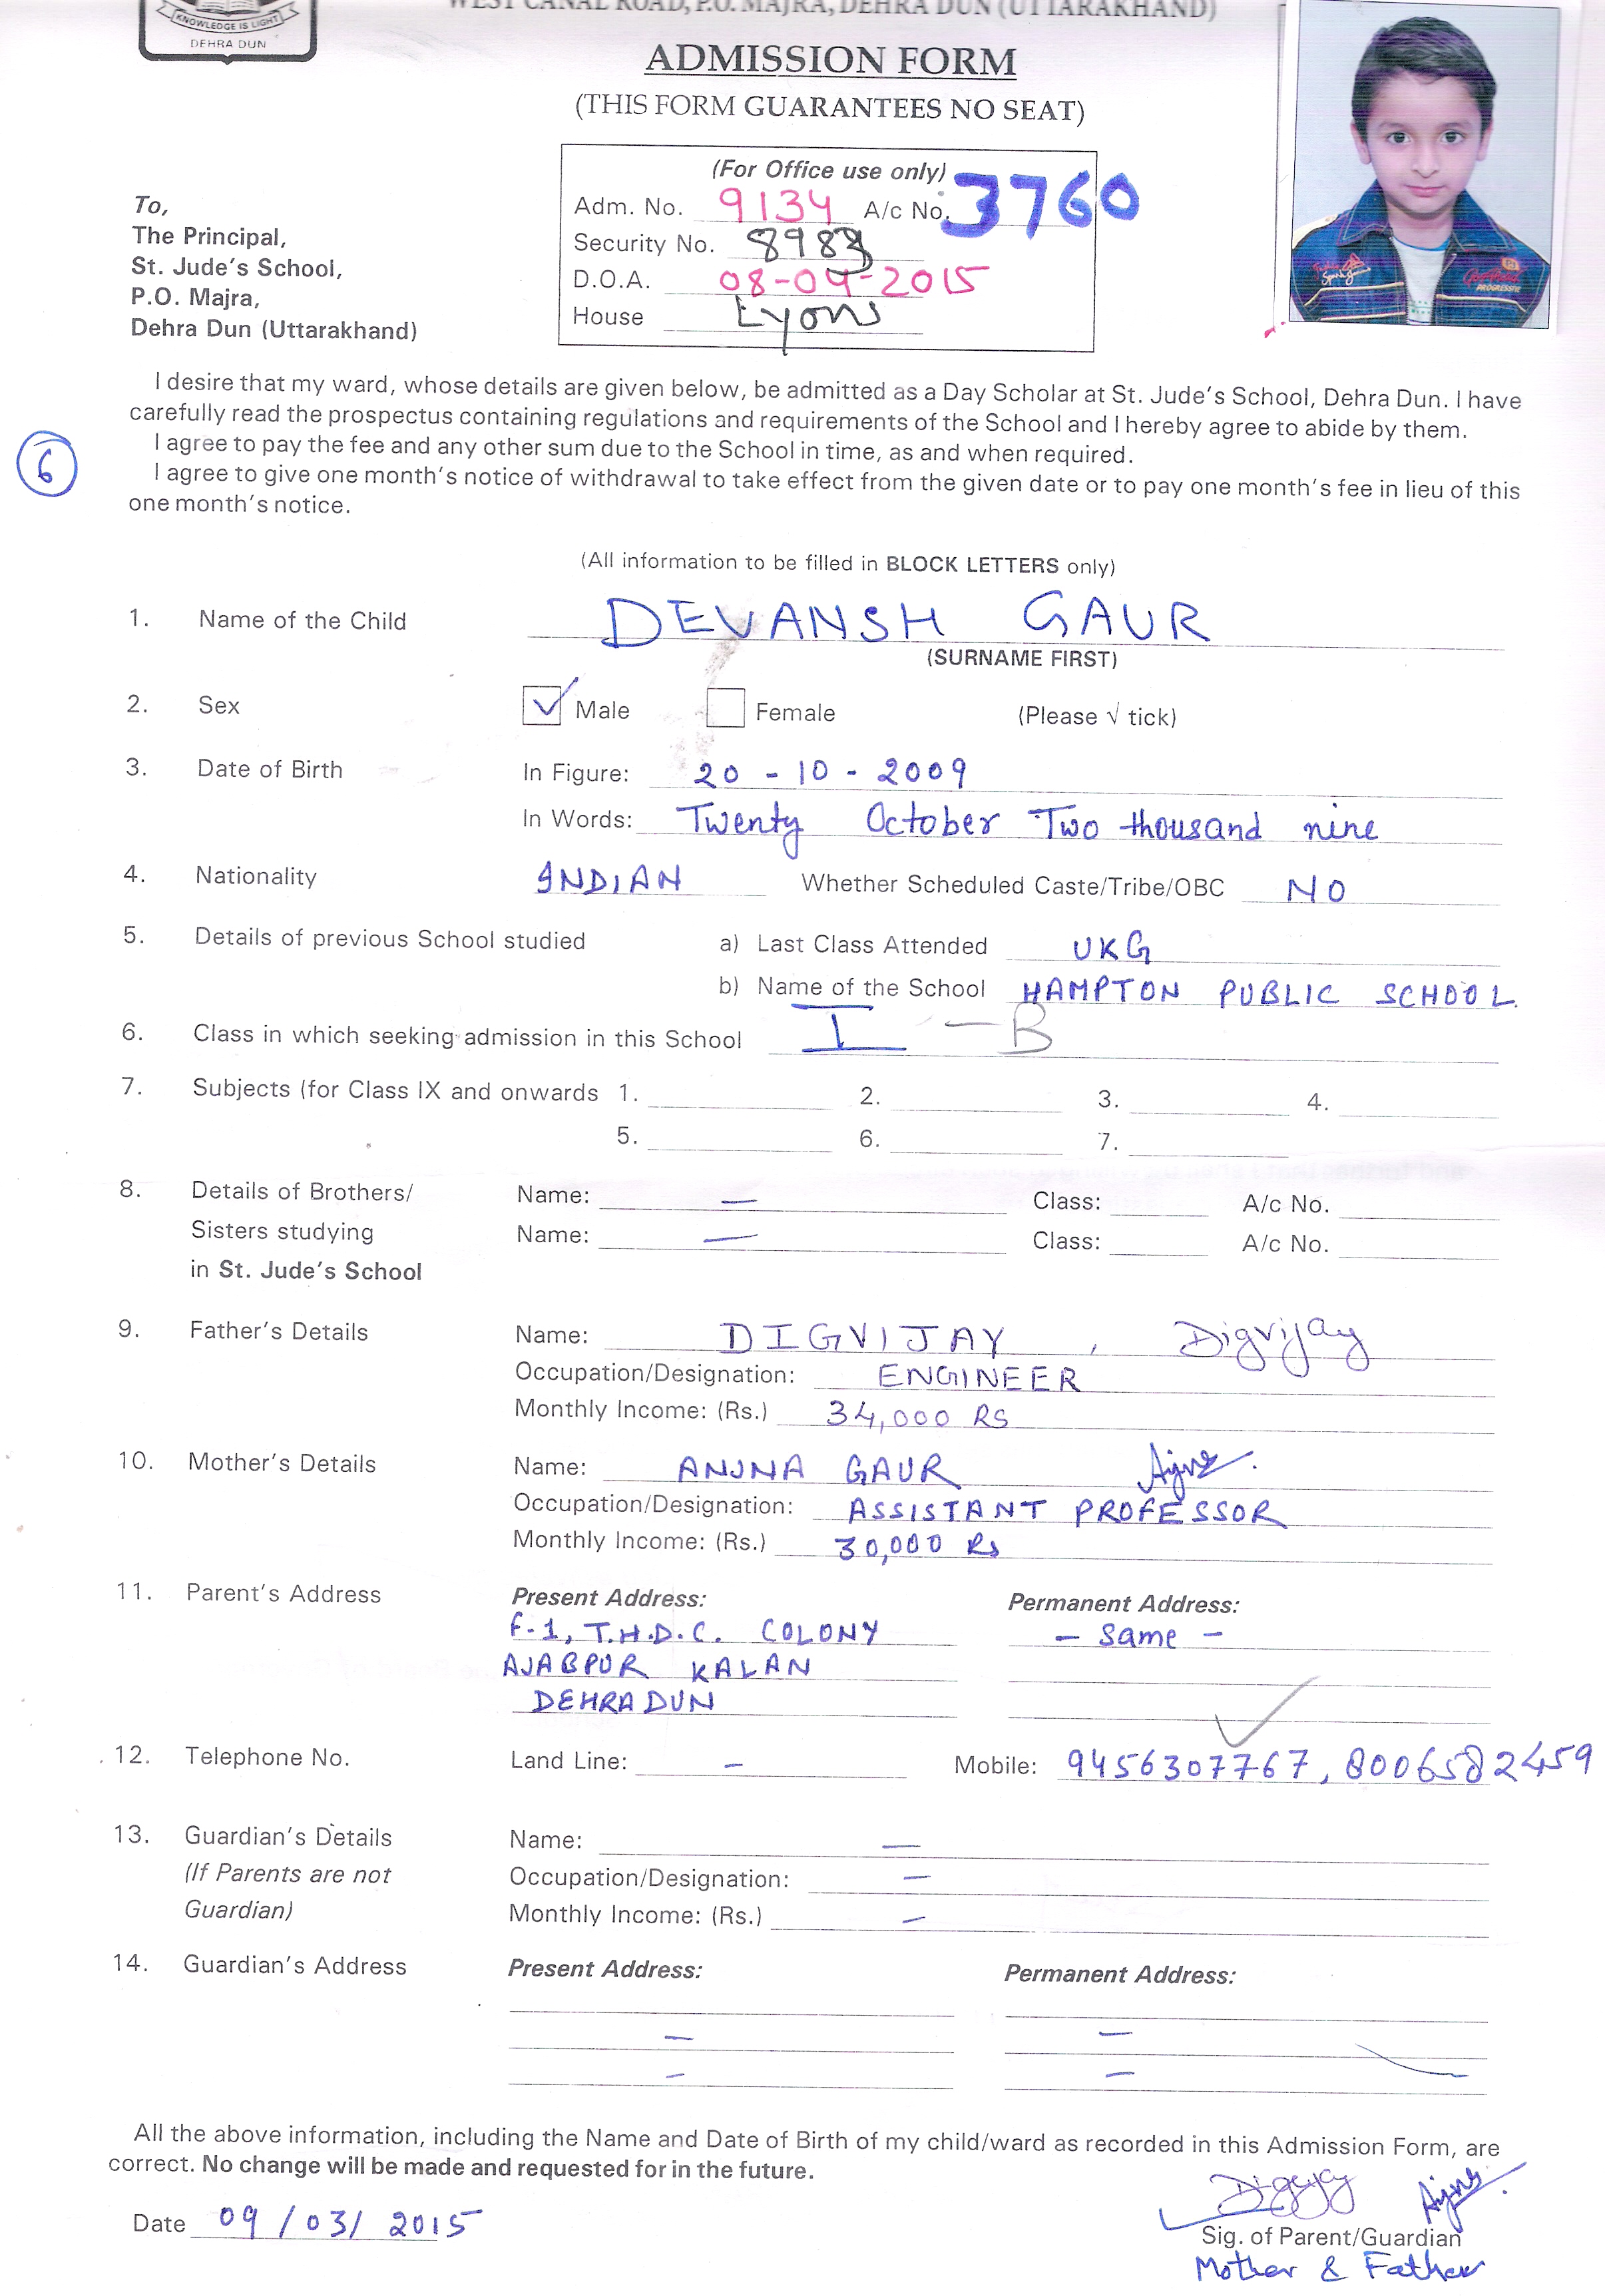 KNOWLEDGE IS LIGHT
DEHRA DUN
WEST CANAL ROAD, P.O. MAJRA, DEHRA DUN (UTTARAKHAND)
ADMISSION FORM
(THIS FORM GUARANTEES NO SEAT)
(For Office use only)
Adm. No. 9134 A/c No. 3760
Security No. 8983
D.O.A. 08-04-2015
House Lyons
To,
The Principal,
St. Jude's School,
P.O. Majra,
Dehra Dun (Uttarakhand)
I desire that my ward, whose details are given below, be admitted as a Day Scholar at St. Jude's School, Dehra Dun. I have
carefully read the prospectus containing regulations and requirements of the School and I hereby agree to abide by them.
I agree to pay the fee and any other sum due to the School in time, as and when required.
6
I agree to give one month's notice of withdrawal to take effect from the given date or to pay one month's fee in lieu of this
one month's notice.
(All information to be filled in BLOCK LETTERS only)
1. Name of the Child DEVANSH GAUR
(SURNAME FIRST)
2. Sex Male Female (Please √ tick)
3. Date of Birth In Figure: 20 - 10 - 2009
In Words: Twenty October Two thousand nine
4. Nationality INDIAN Whether Scheduled Caste/Tribe/OBC NO
5. Details of previous School studied a) Last Class Attended UKG
b) Name of the School HAMPTON PUBLIC SCHOOL.
6. Class in which seeking admission in this School I - B
7. Subjects (for Class IX and onwards 1. 2. 3. 4.
5. 6. 7.
8. Details of Brothers/ Name: — Class: A/c No.
Sisters studying Name: — Class: A/c No.
in St. Jude's School
9. Father's Details Name: DIGVIJAY , Digvijay
Occupation/Designation: ENGINEER
Monthly Income: (Rs.) 34,000 RS
10. Mother's Details Name: ANJNA GAUR
Occupation/Designation: ASSISTANT PROFESSOR
Monthly Income: (Rs.) 30,000 Rs
11. Parent's Address Present Address: Permanent Address:
F-1, T.H.D.C. COLONY - Same -
AJABPUR KALAN
DEHRADUN
12. Telephone No. Land Line: - Mobile: 9456307767, 8006582459
13. Guardian's Details Name: —
(If Parents are not Occupation/Designation: —
Guardian) Monthly Income: (Rs.) —
14. Guardian's Address Present Address: Permanent Address:
— —
— —
All the above information, including the Name and Date of Birth of my child/ward as recorded in this Admission Form, are
correct. No change will be made and requested for in the future.
Date 09/03/2015
Sig. of Parent/Guardian
Mother & Father